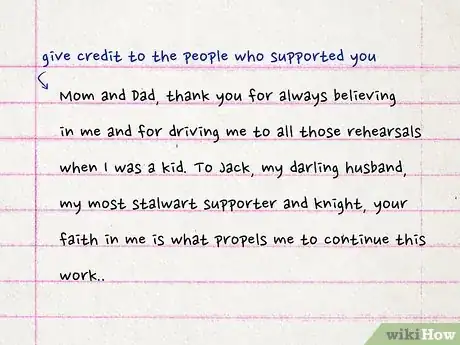 give credit to the people who supported you
Mom and Dad, thank you for always believing
in me and for driving me to all those rehearsals
when I was a kid. To Jack, my darling husband,
my most stalwart supporter and knight, your
faith in me is what propels me to continue this
work..
wikiHow